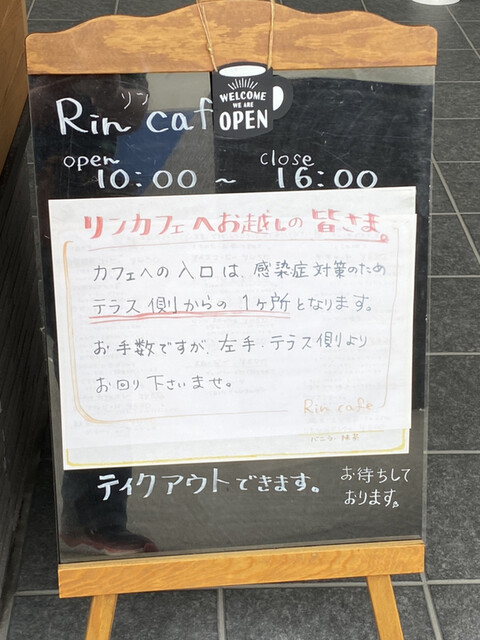 リン
Rin caf
WELCOME
WE ARE
OPEN
open close
10:00 ~ 16:00
リンカフェへお越しの皆さま。
カフェへの入口は、感染症対策のため
テラス側からの1ヶ所となります。
お手数ですが、左手・テラス側より
お回り下さいませ。
Rin cafe
バニラ・抹茶
テイクアウトできます。
お待ちして
おります。